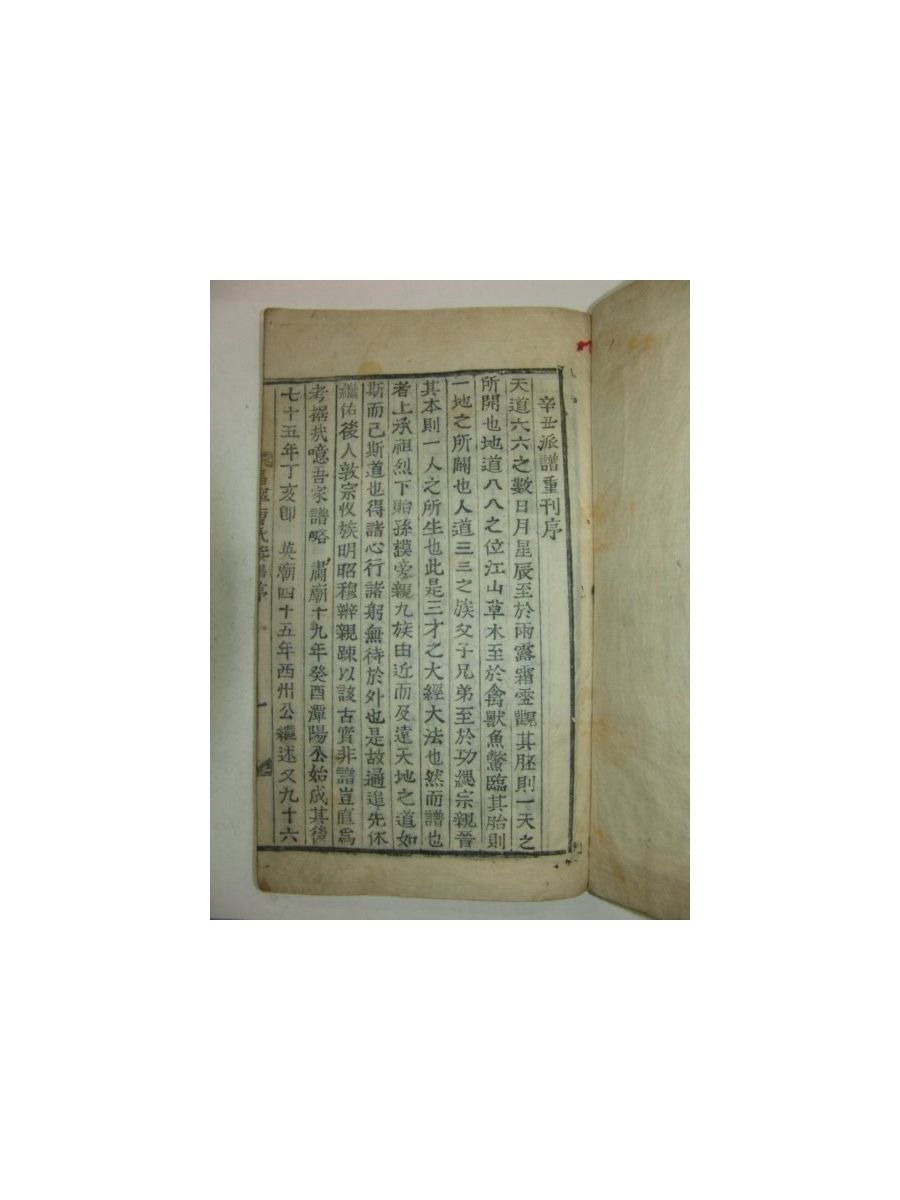 辛丑派譜重刊序
天道六六之數日月星辰至於雨露霜雪觀其胚則一天之
所開也地道八八之位江山草木至於禽獸魚鱉臨其胎則
一地之所闢也人道三三之族父子兄弟至於功緦宗親晉
其本則一人之所生也此是三才之大經大法也然而譜也
者上承祖烈下貽孫謨旁親九族由近而及遠天地之道如
斯而已斯道也得諸心行諸躬無待於外也是故遹追先休
繼佑後人敦宗收族明昭穆辨親踈以該古實非譜豈直爲
考据哉噫吾家譜略 肅廟十九年癸酉潭陽公始成其後
七十五年丁亥卽 英廟四十五年西州公繼述又九十六
曺氏 序 一